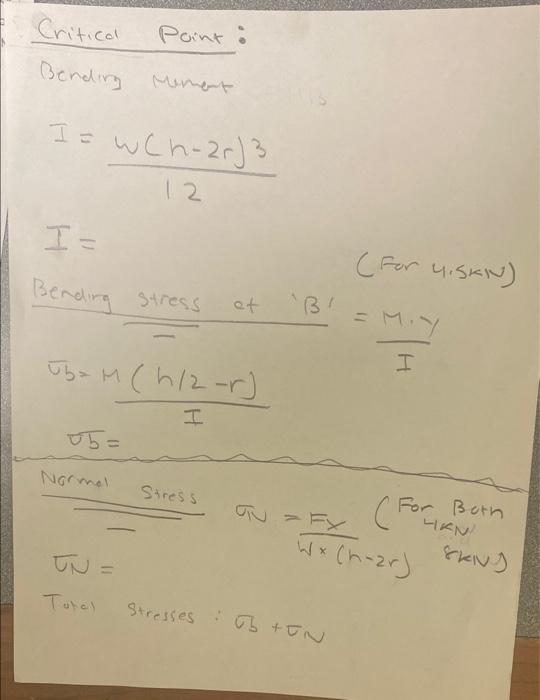 Critical Point :
Bending Moment
I = W(h-2r)3
12
I =
(For 4.5KN)
Bending stress at 'B' = M.y
I
σb = M(h/2-r)
I
σb =
Normal Stress
σN = Fx
W×(h-2r)
(For Both
4KN
8KN)
σN =
Total Stresses : σb + σN